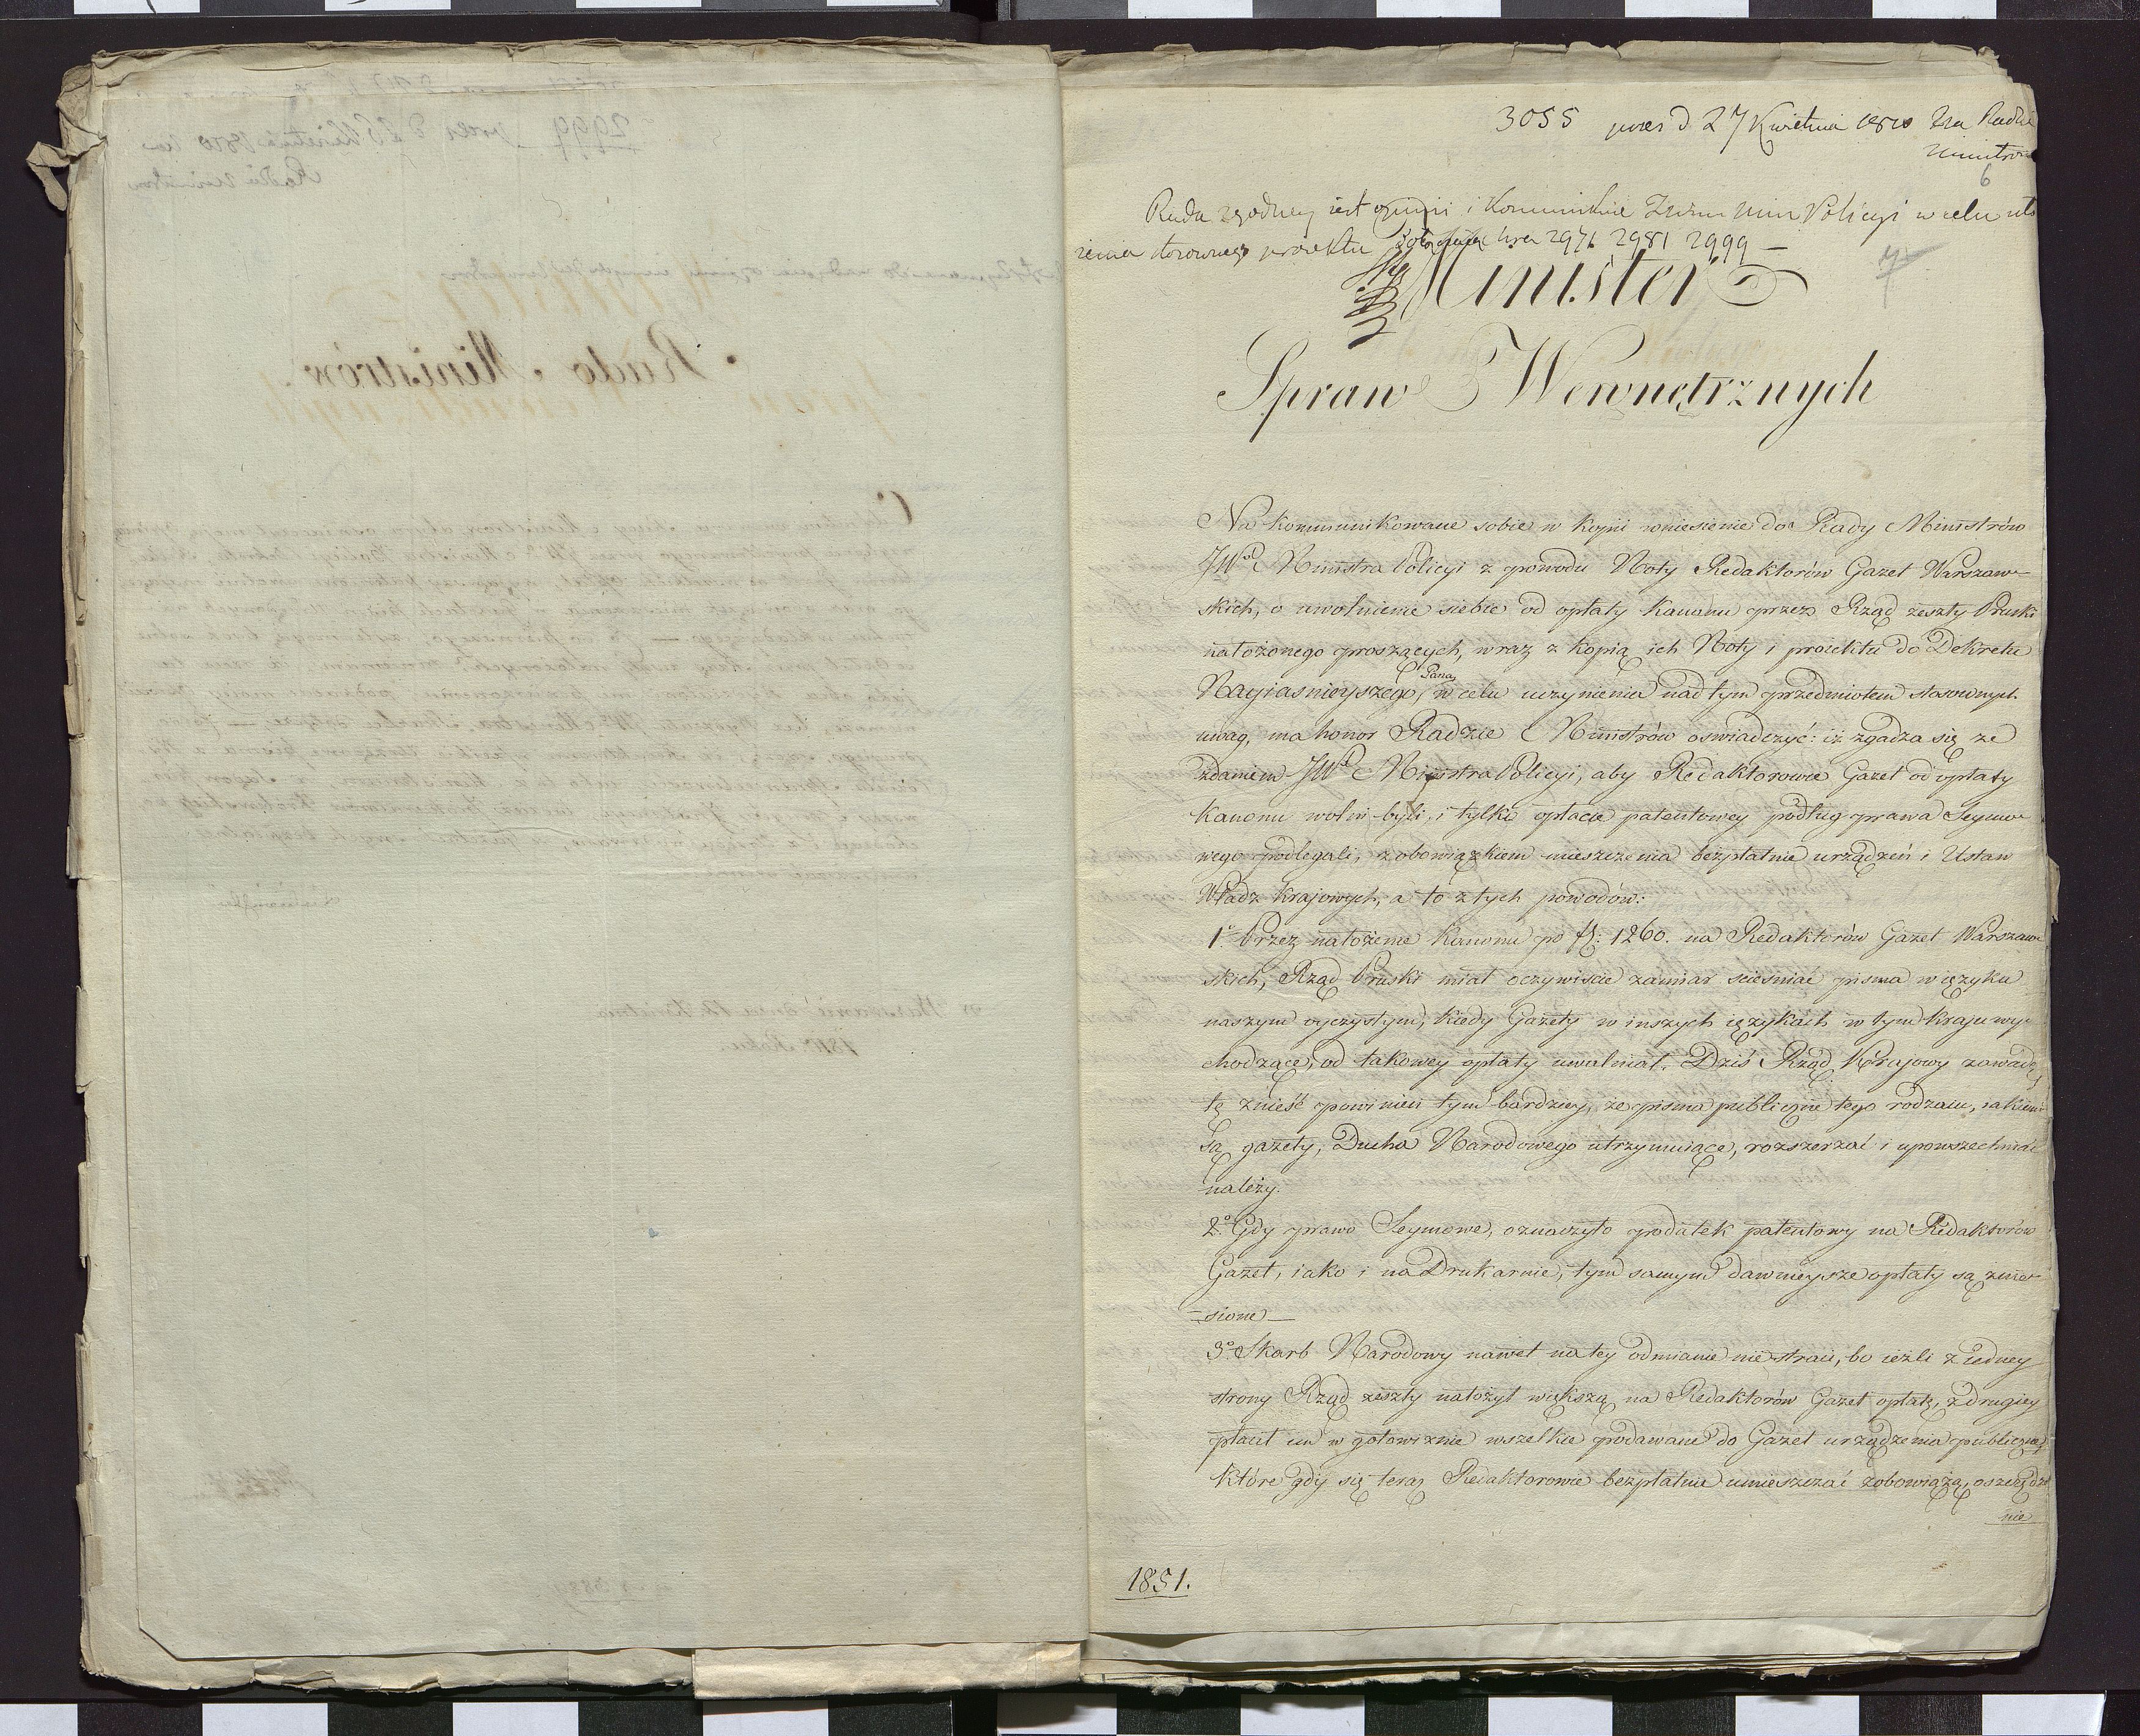 3055 prez d 27 Kwietnia 1810 Na Radzie
Ministrów
6
Rada zgodney jest opinii i kommunikuie Min Policyi w celu uło
żenia stosownego proiektu Nra 2976 2981 2999 —
Minister
Spraw Wewnętrznych
Na kommunikowane sobie w kopii wniesienie do Rady Ministrów
JWo Ministra Policyi z powodu Noty Redaktorów Gazet Warszaw-
skich, o uwolnienie siebie od opłaty Kanonu przez Rząd zeszły Pruski
nałożonego proszących, wraz z kopią ich Noty i proiektu do Dekretu
Nayiasnieyszego Pana, w celu uczynienia nad tym przedmiotem stosownych
uwag, ma honor Radzie Ministrów oświadczyć: iż zgadza się ze
zdaniem JWo Ministra Policyi, aby Redaktorowie Gazet od opłaty
Kanonu wolni byli, i tylko opłacie patentowey podług prawa Seymo-
wego podlegali, z obowiązkiem mieszczenia bezpłatnie urządzeń i Ustaw
Władz krajowych, a to z tych powodów:
1o Przez nałożenie Kanonu po fl: 1260. na Redaktorów Gazet Warszaw-
skich, Rząd Pruski miał oczywiście zamiar scieśniać pisma w ięzyku
naszym oyczystym, kiedy Gazety w inszych ięzykach w tym kraju wy-
chodzące, od takowey opłaty uwalniał. Dziś Rząd Krajowy zawadę
tę znieść powinien tym bardziey, że pisma publiczne tego rodzaiu, iakiemi
są gazety, Ducha Narodowego utrzymuiące, rozszerzać i upowszechniać
należy.
2o Gdy prawo Seymowe, oznaczyło podatek patentowy na Redaktorów
Gazet, iako i na Drukarnie, tym samym dawnieysze opłaty są znie-
-sione —
3o Skarb Narodowy nawet na tey odmianie nie straci, bo ieżli z iedney
strony Rząd zeszły nałożył większą na Redaktorów Gazet opłatę, z drugiey
płacił im w gotowiznie wszelkie podawane do Gazet urządzenia publiczne,
które gdy się teraz Redaktorowie bezpłatnie umieszczać zobowiążą, oszczędze
nie
1851.